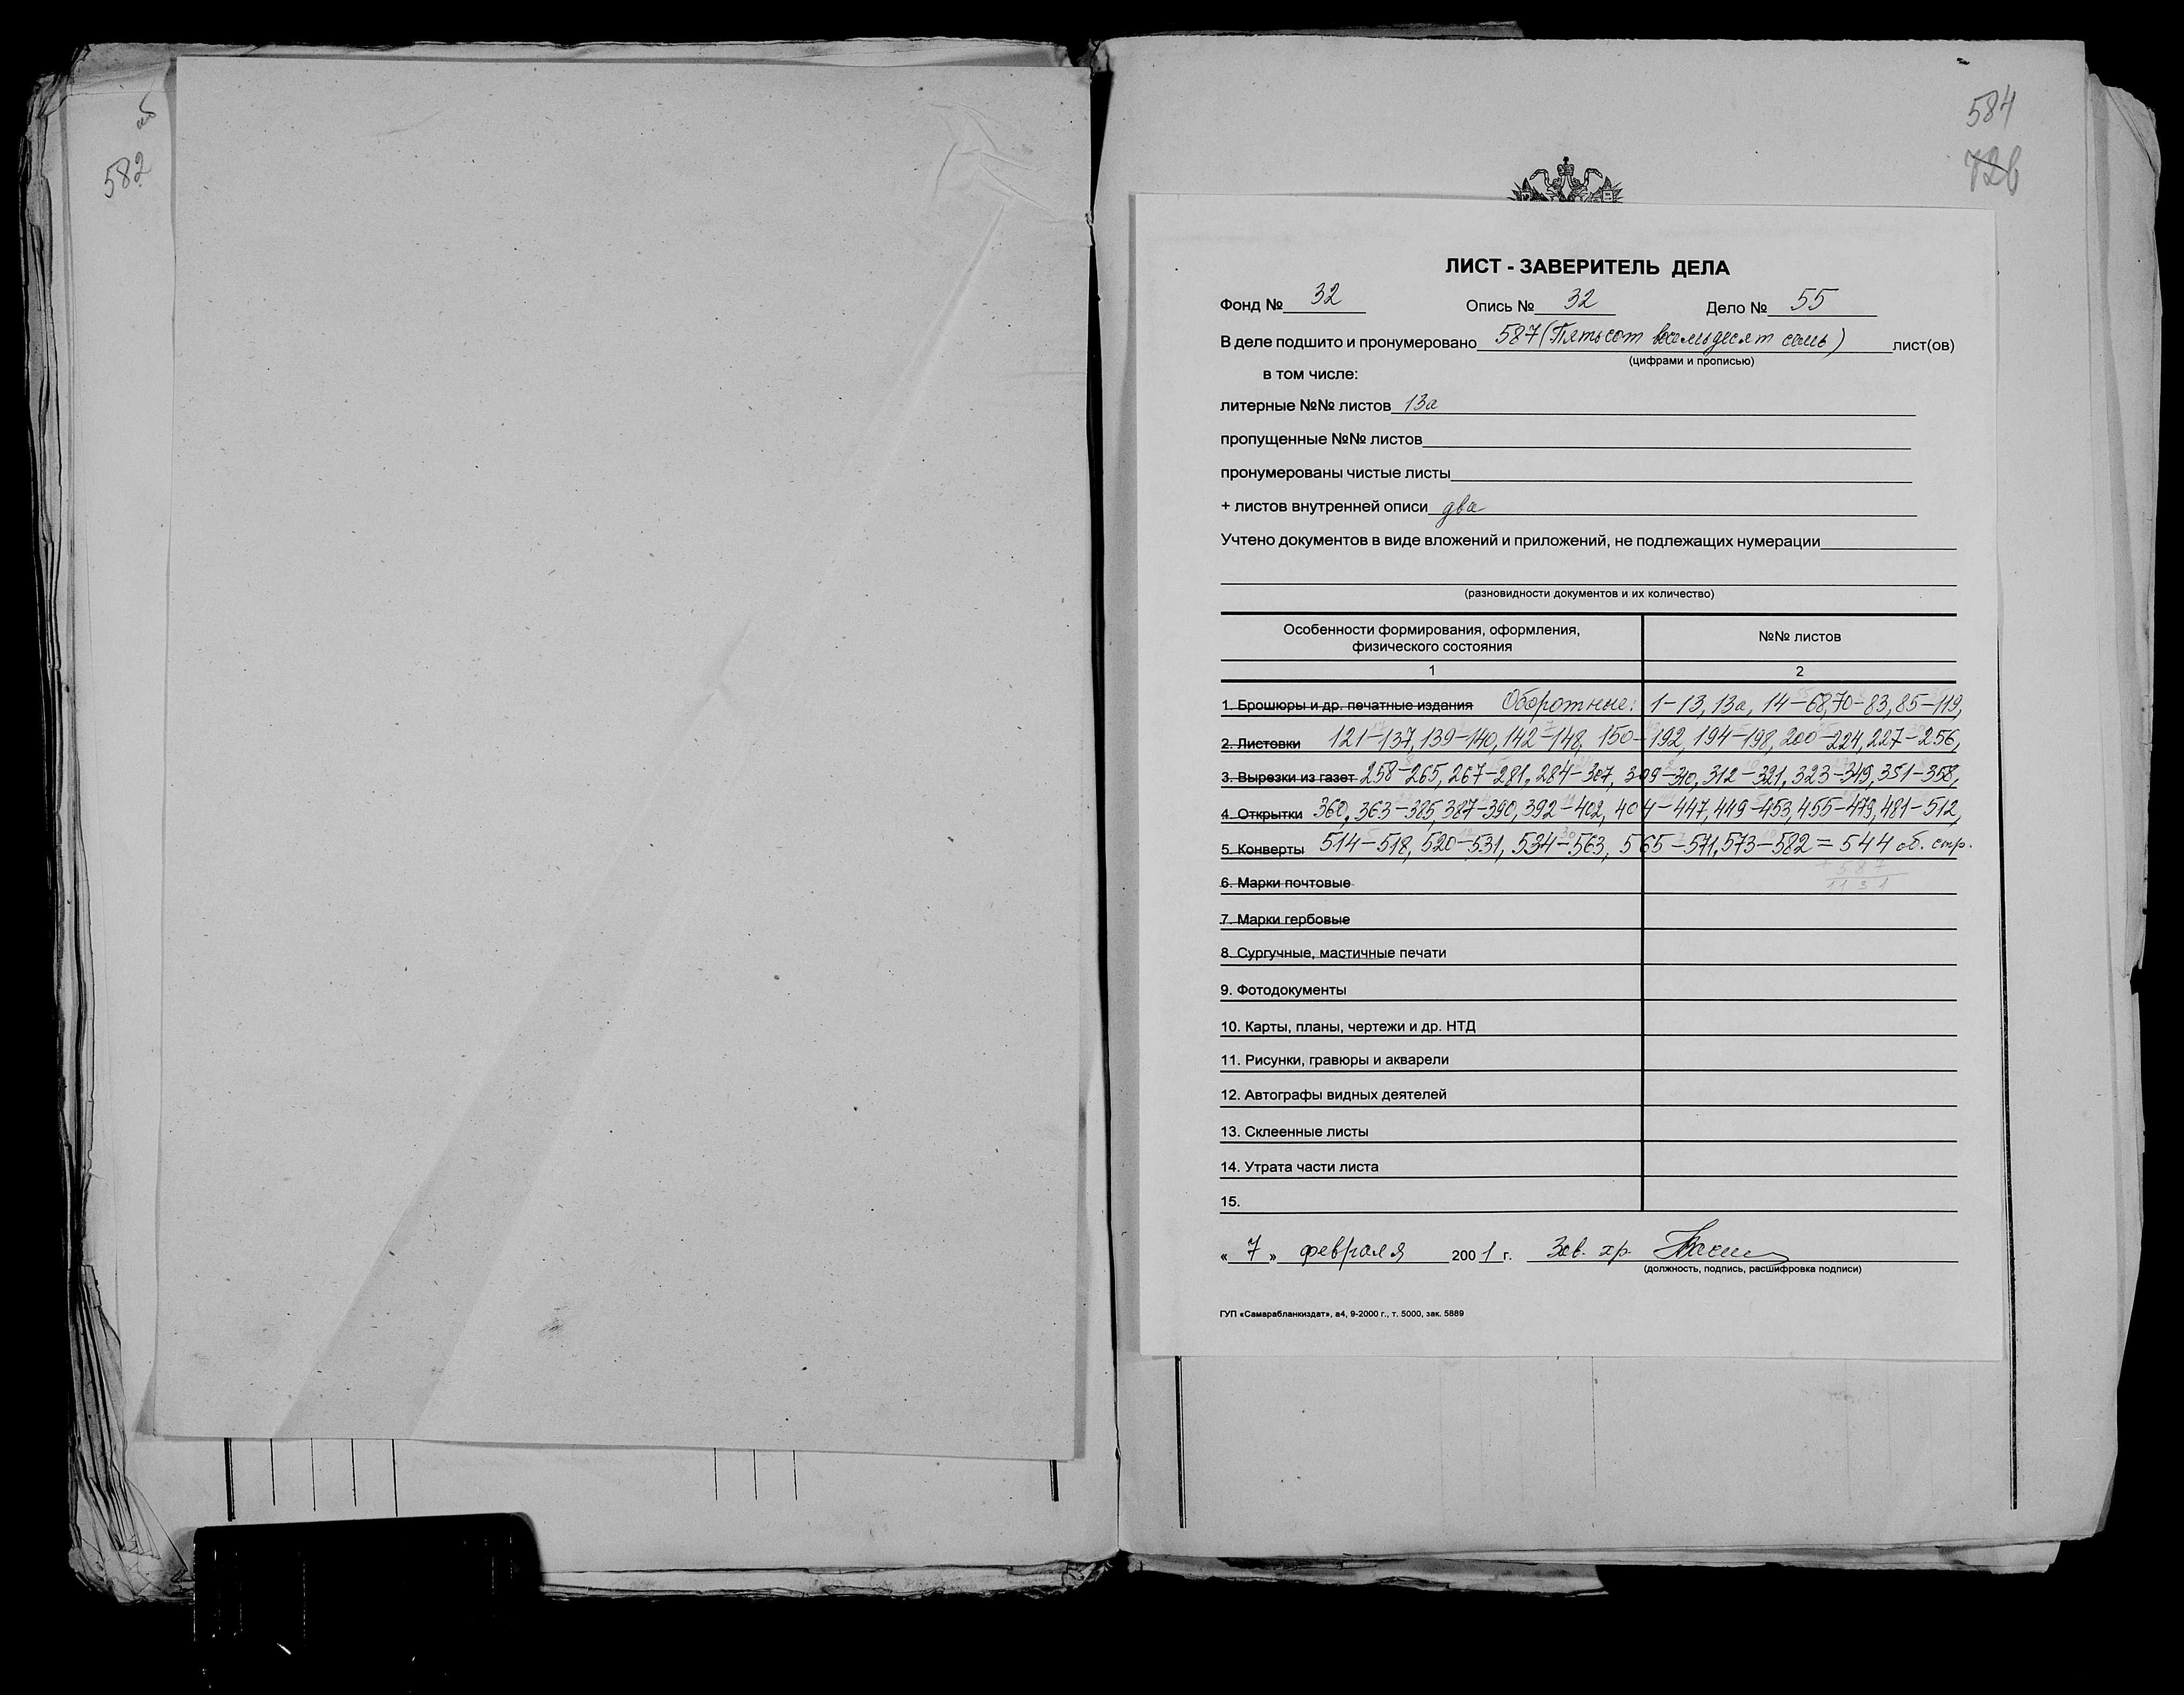 об
582
584
726
ЛИСТ - ЗАВЕРИТЕЛЬ ДЕЛА
Фонд № 32 Опись № 32 Дело № 55
В деле подшито и пронумеровано 587 (Пятьсот восемьдесят семь) лист(ов)
(цифрами и прописью)
в том числе:
литерные №№ листов 13а
пропущенные №№ листов
пронумерованы чистые листы
+ листов внутренней описи два
Учтено документов в виде вложений и приложений, не подлежащих нумерации
(разновидности документов и их количество)
Особенности формирования, оформления, физического состояния №№ листов
1 2
1. Брошюры и др. печатные издания Оборотные: 1-13, 13а, 14-68, 70-83, 85-119,
2. Листовки 121-137, 139-140, 142-148, 150-192, 194-198, 200-224, 227-256,
3. Вырезки из газет 258-265, 267-281, 284-307, 309-310, 312-321, 323-349, 351-358,
4. Открытки 360, 363-385, 387-390, 392-402, 404-447, 449-453, 455-479, 481-512,
5. Конверты 514-518, 520-531, 534-563, 565-571, 573-582 = 544 об. стр.
+ 587
1131
6. Марки почтовые
7. Марки гербовые
8. Сургучные, мастичные печати
9. Фотодокументы
10. Карты, планы, чертежи и др. НТД
11. Рисунки, гравюры и акварели
12. Автографы видных деятелей
13. Склеенные листы
14. Утрата части листа
15.
« 7 » февраля 2001 г. Зав. хр.
(должность, подпись, расшифровка подписи)
ГУП «Самарабланкиздат», а4, 9-2000 г., т. 5000, зак. 5889